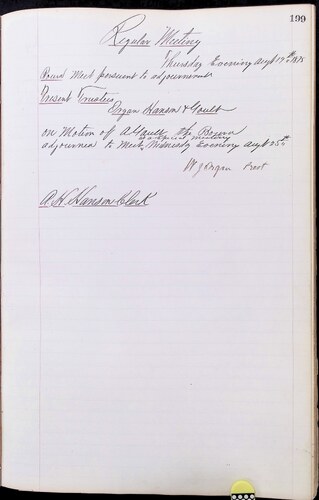 199
Regular Meeting
Thursday Evening augt 19th 1875
Board Meet pursuant to adjournment
Present Trustees
Organ Hanson & Goult
on Motion of A Goult the Board
a special meeting
adjourned to Meet Wednesday Evening augt 25th
W J Organ Prest
A. H. Hanson Clerk